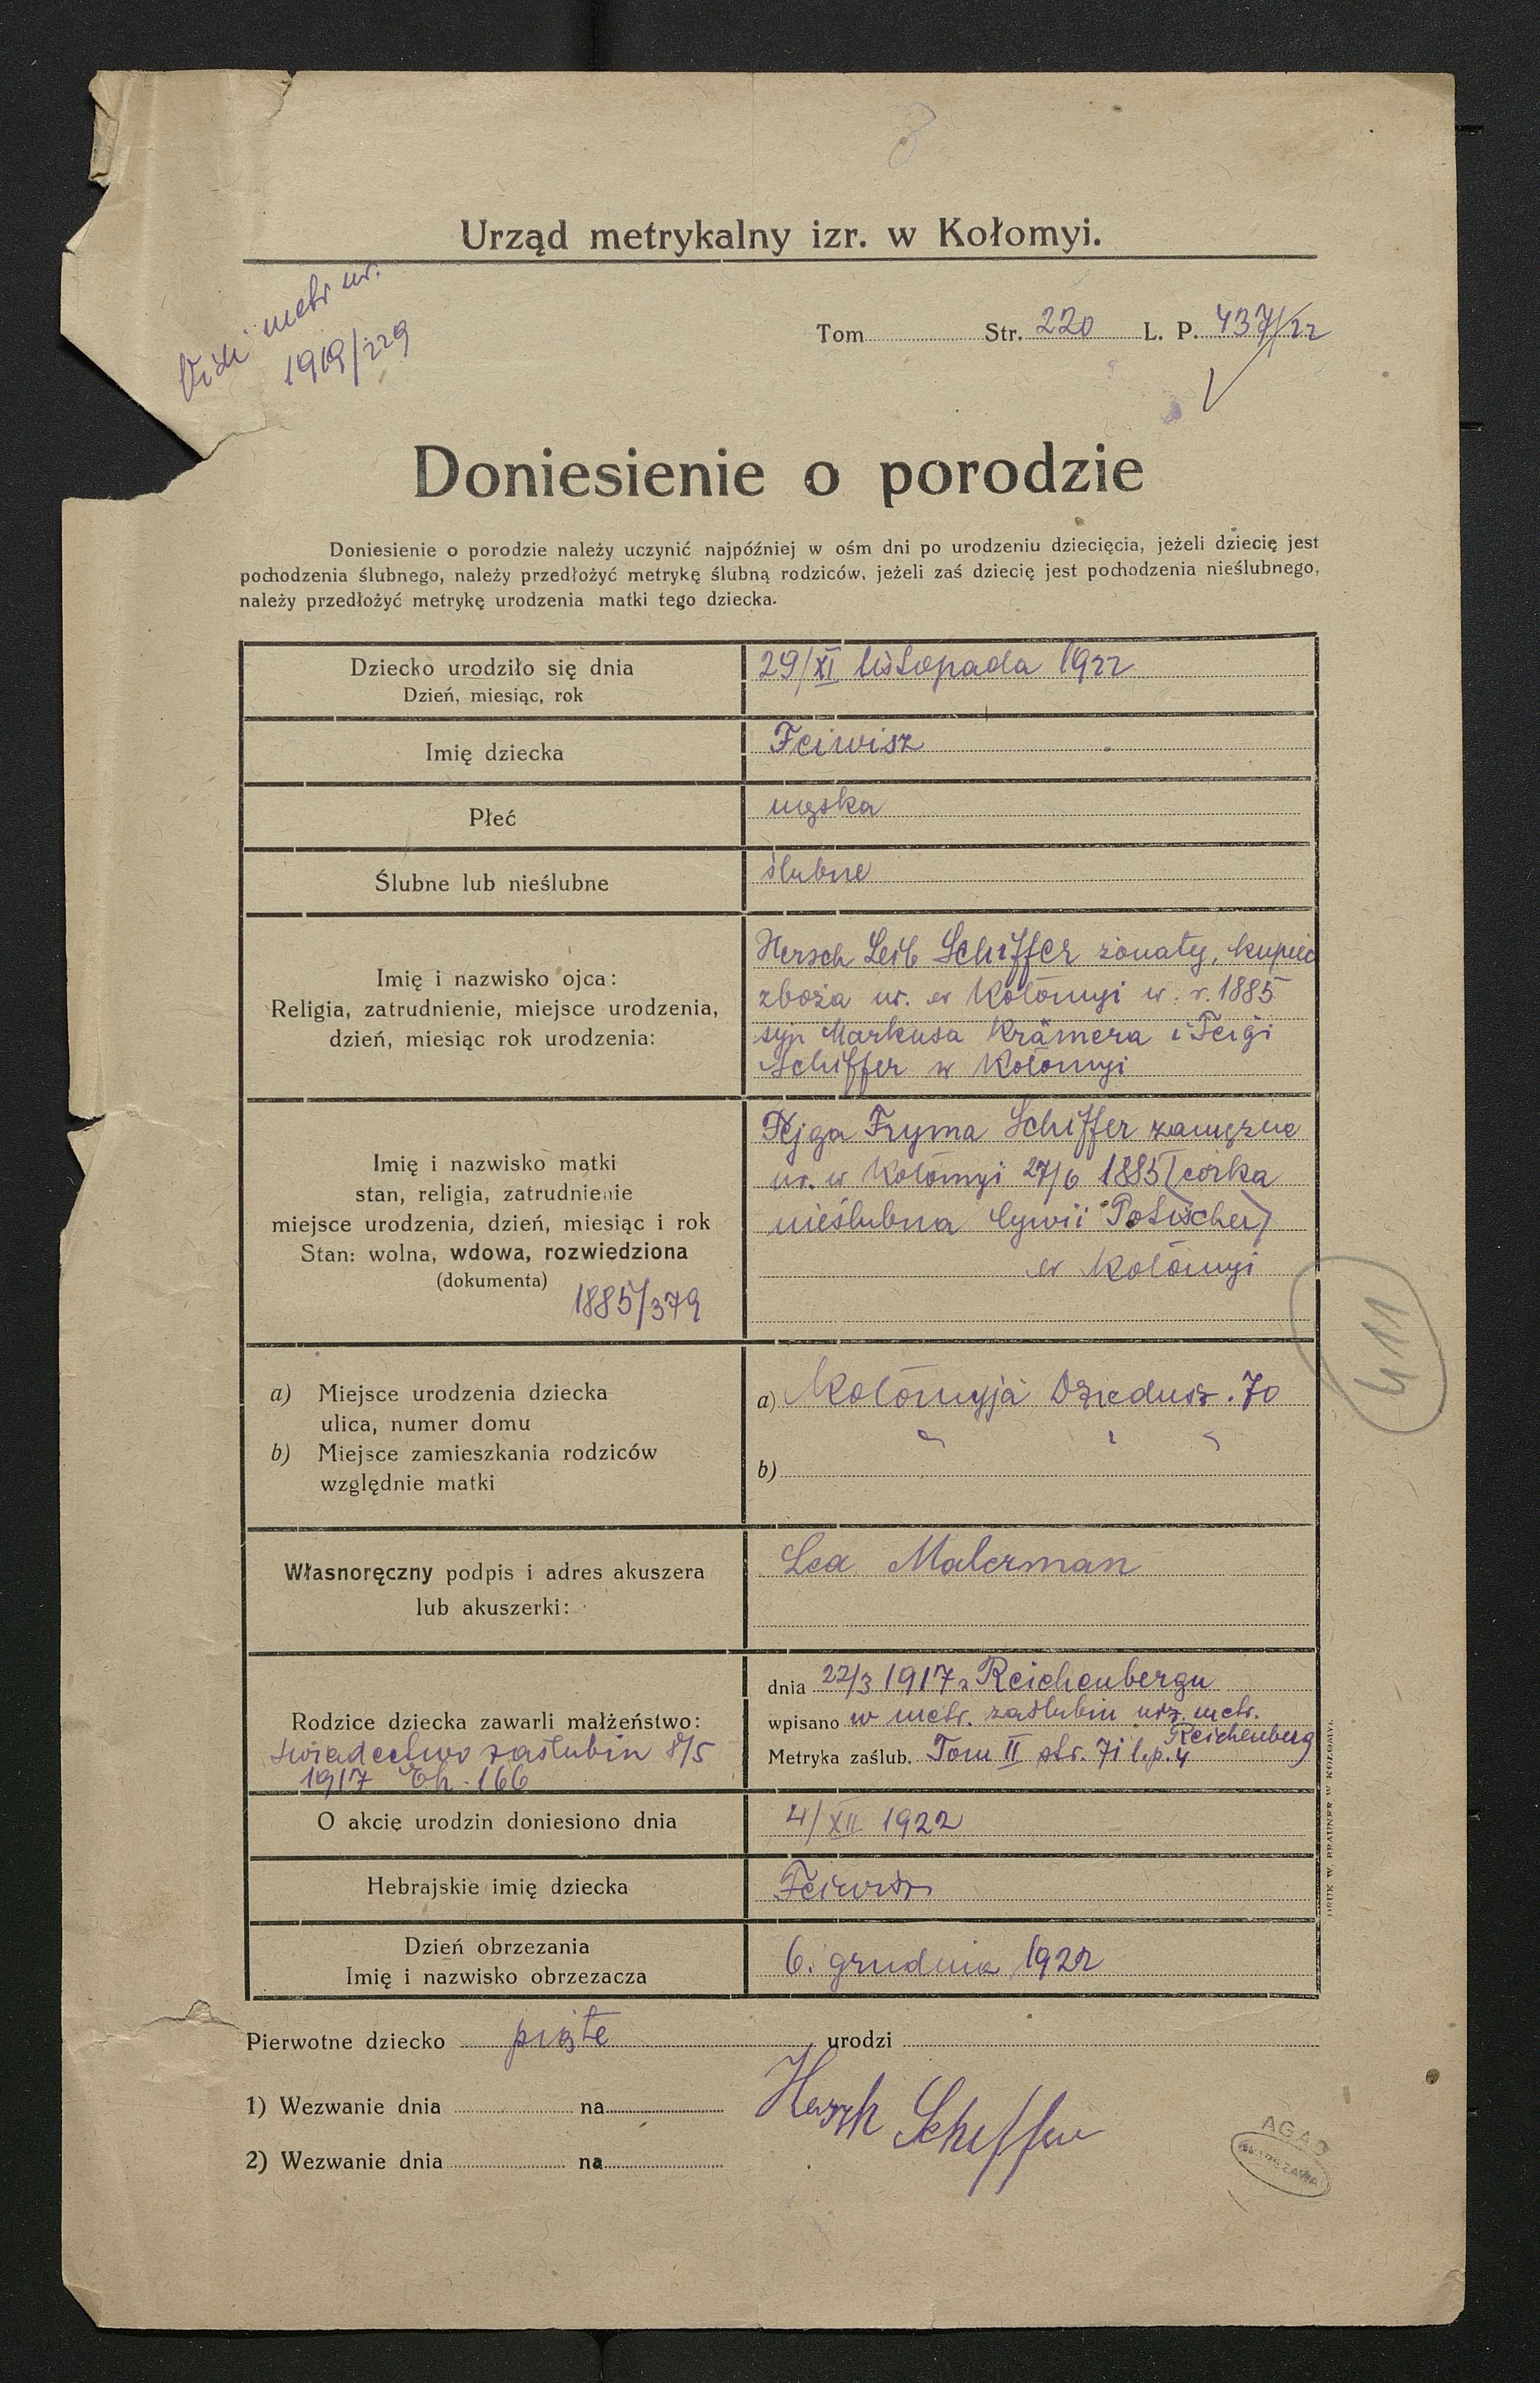 Urząd metrykalny izr. w Kołomyi.
Vidi metr ur.
1919/229
Tom Str. 220 L. P. 437/22
Doniesienie o porodzie
Doniesienie o porodzie należy uczynić najpóźniej w ośm dni po urodzeniu dziecięcia, jeżeli dziecię jest
pochodzenia ślubnego, należy przedłożyć metrykę ślubną rodziców, jeżeli zaś dziecię jest pochodzenia nieślubnego,
należy przedłożyć metrykę urodzenia matki tego dziecka.
Dziecko urodziło się dnia
Dzień, miesiąc, rok
29/XI listopada 1922
Imię dziecka
Feiwisz
Płeć
męska
Ślubne lub nieślubne
ślubne
Imię i nazwisko ojca:
Religia, zatrudnienie, miejsce urodzenia,
dzień, miesiąc rok urodzenia:
Hersch Leib Schiffer żonaty, kupiec
zboża ur. w Kołomyi w r. 1885
syn Markusa Krämera i Feigi
Schiffer w Kołomyi
Imię i nazwisko matki
stan, religia, zatrudnienie
miejsce urodzenia, dzień, miesiąc i rok
Stan: wolna, wdowa, rozwiedziona
(dokumenta)
1885/379
Fejga Fryma Schiffer zamężna
ur. w Kołomyi 27/6 1885 (córka
nieślubna Cywii Potischer)
w Kołomyi
411
a) Miejsce urodzenia dziecka
ulica, numer domu
b) Miejsce zamieszkania rodziców
względnie matki
a) Kołomyja Dziedusz. 70
b) " " "
Własnoręczny podpis i adres akuszera
lub akuszerki:
Lea Malerman
Rodzice dziecka zawarli małżeństwo:
świadectwo zaślubin 8/5
1917 Eh. 166
dnia 22/3 1917 z Reichenbergu
wpisano w metr. zaślubin urz. metr.
Reichenberg
Metryka zaślub. Tom II str. 71 l.p. 4
O akcie urodzin doniesiono dnia
4/XII 1922
Hebrajskie imię dziecka
Feiwisz
Dzień obrzezania
Imię i nazwisko obrzezacza
6. grudnia 1922
DRUK W. BRAUNER W KOŁOMYI.
Pierwotne dziecko piąte urodzi
1) Wezwanie dnia na
Hersch Schiffer
2) Wezwanie dnia na
AGAD
WARSZAWA